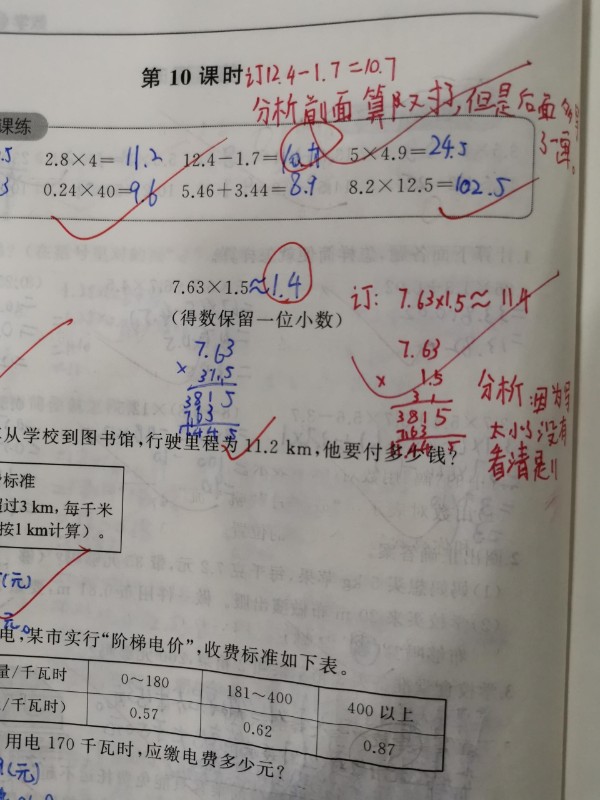 第 10 课时 订12.4-1.7=10.7
分析前面算时又对了,但是后面
了一画。
课练
.5 2.8×4=11.2 12.4-1.7= 5×4.9=24.5
3 0.24×40=9.6 5.46+3.44=8.9 8.2×12.5=102.5
7.63×1.5≈1.4 订: 7.63×1.5≈11.4
(得数保留一位小数)
7.63 7.63
× 1.5 × 1.5
3815 3815
763 763
分析:因为写
太小了没有
看清是11
从学校到图书馆,行驶里程为 11.2 km,他要付多少钱?
标准
过3 km, 每千米
按1 km计算)。
(元)
元。
电,某市实行“阶梯电价”,收费标准如下表。
量/千瓦时 0~180 181~400 400 以上
/千瓦时) 0.57 0.62 0.87
用电 170 千瓦时,应缴电费多少元?
(元)